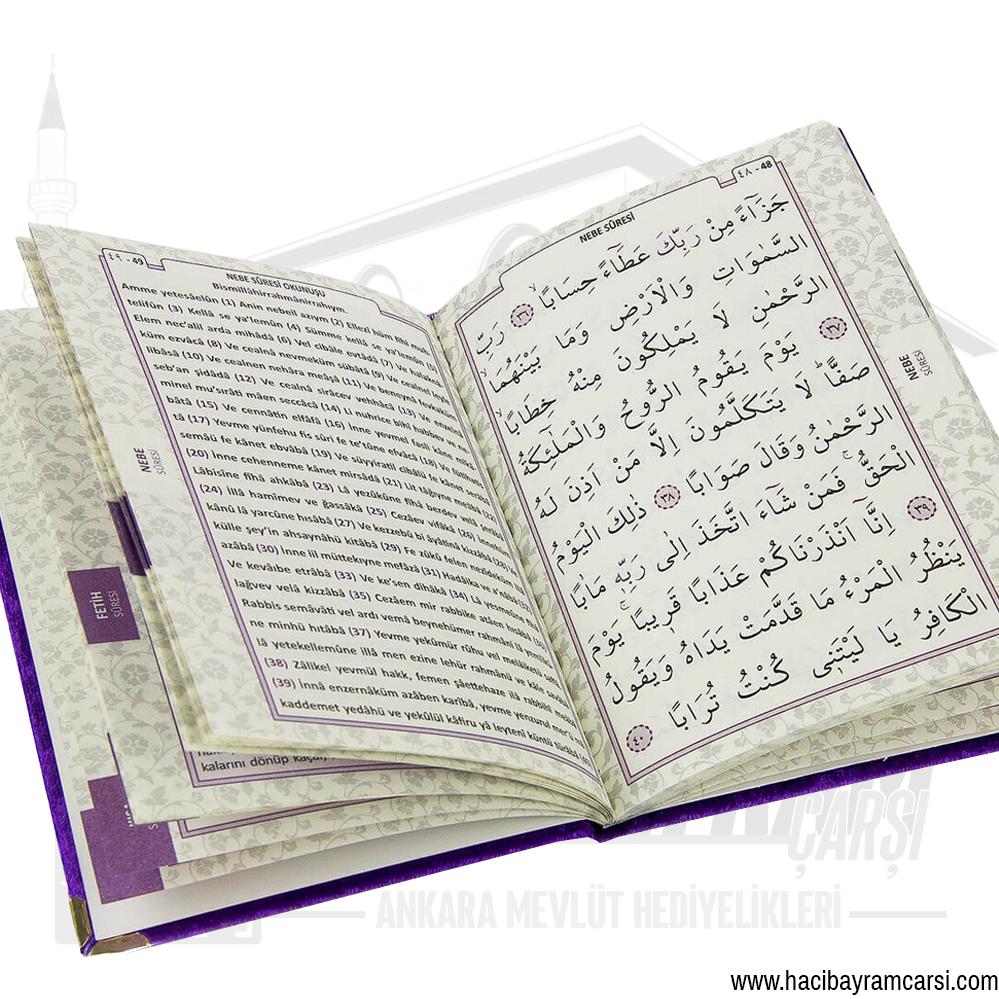 ٤٨ - 48
NEBE SÛRESİ
جَزَٓاءً مِنْ رَبِّكَ عَطَٓاءً حِسَابًاۙ ﴿٣٦﴾ رَبِّ
السَّمٰوَاتِ وَالْاَرْضِ وَمَا بَيْنَهُمَا
الرَّحْمٰنِ لَا يَمْلِكُونَ مِنْهُ خِطَابًاۚ ﴿٣٧﴾
يَوْمَ يَقُومُ الرُّوحُ وَالْمَلٰٓئِكَةُ
صَفًّاۜ لَا يَتَكَلَّمُونَ اِلَّا مَنْ اَذِنَ لَهُ
الرَّحْمٰنُ وَقَالَ صَوَابًا ﴿٣٨﴾ ذٰلِكَ الْيَوْمُ
الْحَقُّۚ فَمَنْ شَٓاءَ اتَّخَذَ اِلٰى رَبِّه۪ مَاٰبًا ﴿٣٩﴾
اِنَّٓا اَنْذَرْنَاكُمْ عَذَابًا قَر۪يبًاۚ يَوْمَ
يَنْظُرُ الْمَرْءُ مَا قَدَّمَتْ يَدَاهُ وَيَقُولُ
الْكَافِرُ يَا لَيْتَن۪ى كُنْتُ تُرَابًا ﴿٤٠﴾
NEBE
SÛRESİ
٤٩ - 49
NEBE SÛRESİ OKUNUŞU
Bismillâhirrahmânirrahıym.
Amme yetesâelûn (1) Anin nebeil azıym (2) Ellezî hüm fîhi muh
telifûn (3) Kellâ se ya'lemûn (4) Sümme kellâ se ya'lemûn (5)
Elem nec'alil arda mihâdâ (6) Vel cibâle evtâdâ (7) Ve halakna
küm ezvâcâ (8) Ve cealnâ nevmeküm sübâtâ (9) Ve cealnelleyle
libâsâ (10) Ve cealnen nehâra meâşâ (11) Ve beneynâ fevkaküm
seb'an şidâdâ (12) Ve cealnâ sirâcev vehhâcâ (13) Ve enzelnâ
minel mu'sırâti mâen seccâcâ (14) Li nuhrice bihî habbev ve ne
bâtâ (15) Ve cennâtin elfâfâ (16) İnne yevmel fasli kâne mîkâ
tâ (17) Yevme yünfehu fis sûri fe te'tûne efvâcâ (18) Ve fütihatis
semâü fe kânet ebvâbâ (19) Ve süyyiratil cibâlü fe kânet serâbâ
(20) İnne cehenneme kânet mirsâdâ (21) Lit tâğıyne meâbâ (22)
Lâbisîne fîhâ ahkâbâ (23) Lâ yezûkûne fîhâ berdev velâ şerâbâ
(24) İllâ hamîmev ve ğassâkâ (25) Cezâev vifâkâ (26) İnnehüm
kânû lâ yarcûne hısâbâ (27) Ve kezzebû bi âyâtinâ kizzâbâ (28) Ve
külle şey'in ahsaynâhü kitâbâ (29) Fe zûkû felen nezîdeküm illâ
azâbâ (30) İnne lil müttekıyne mefâzâ (31) Hadâika ve a'nâbâ (32)
Ve kevâıbe etrâbâ (33) Ve ke'sen dihâkâ (34) Lâ yesmeûne fîhâ
lağvev velâ kizzâbâ (35) Cezâem mir rabbike atâen hısâbâ (36)
Rabbis semâvâti vel ardı vemâ beynehümer rahmâni lâ yemlikûne
ne minhü hıtâbâ (37) Yevme yekûmür rûhu vel melâiketü saffen
lâ yetekellemûne illâ men ezine lehür rahmânü ve kâle savâbâ
(38) Zâlikel yevmül hakk, femen şâettehaze ilâ rabbihî meâbâ
(39) İnnâ enzernâküm azâben karîbâ, yevme yenzurul mer'ü mâ
kaddemet yedâhü ve yekûlül kâfiru yâ leytenî küntü türâbâ (40)
NEBE
SÛRESİ
FETİH
SÛRESİ
kalarını dönüp kaçar,
ÇARŞI
ANKARA MEVLÜT HEDİYELİKLERİ
www.hacibayramcarsi.com